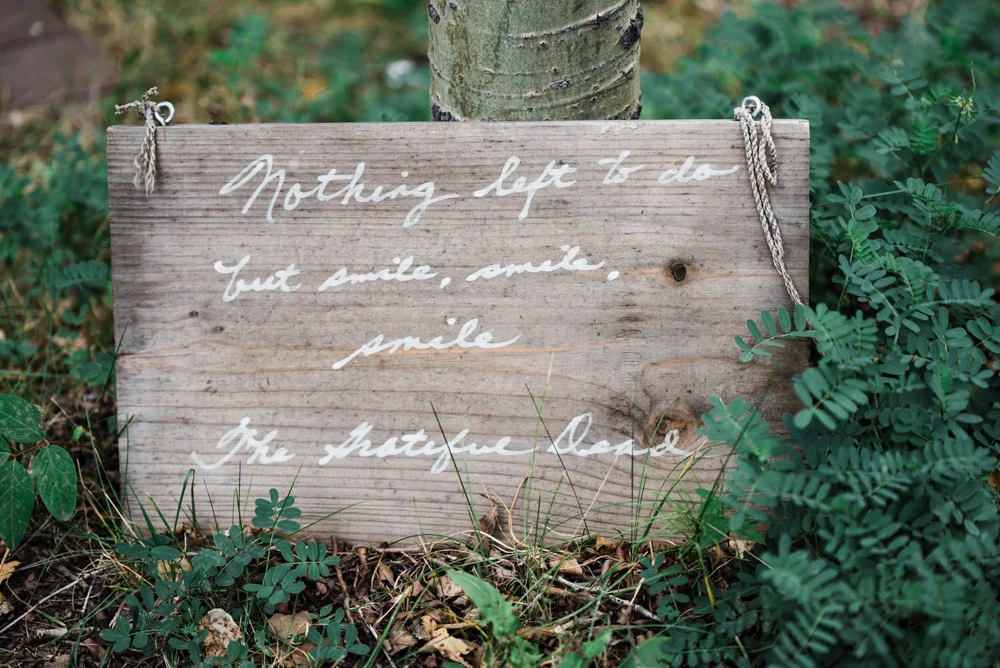 Nothing left to do
but smile, smile,
smile
The Grateful Dead